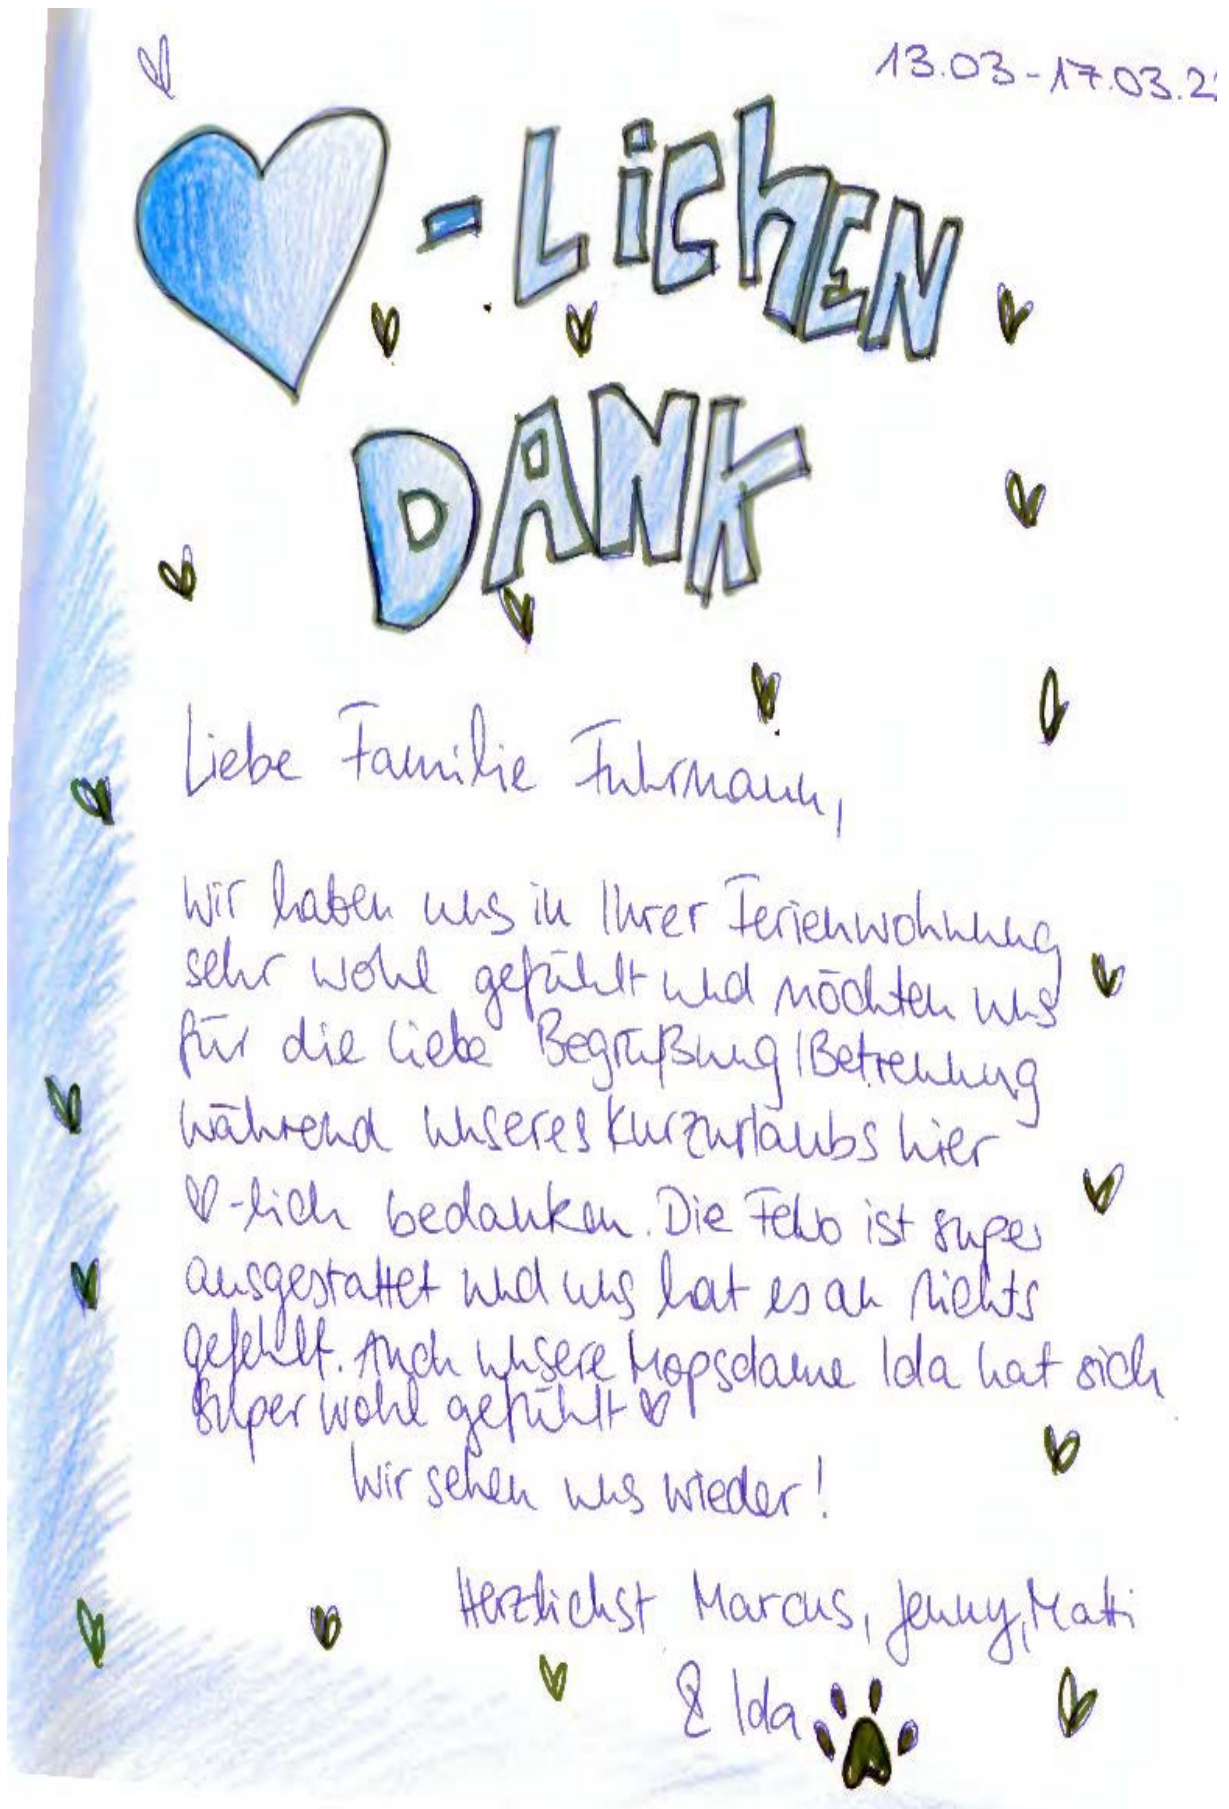 13.03-17.03.2
♥-LICHEN
DANK
Liebe Familie Fuhrmann,
wir haben uns in Ihrer Ferienwohnung
sehr wohl gefühlt und möchten uns
für die liebe Begrüßung/Betreuung
während unseres Kurzurlaubs hier
♡-lich bedanken. Die FeWo ist super
ausgestattet und uns hat es an nichts
gefehlt. Auch unsere Mopsdame Ida hat sich
super wohl gefühlt ♡
Wir sehen uns wieder!
Herzlichst Marcus, Jenny, Matti
& Ida